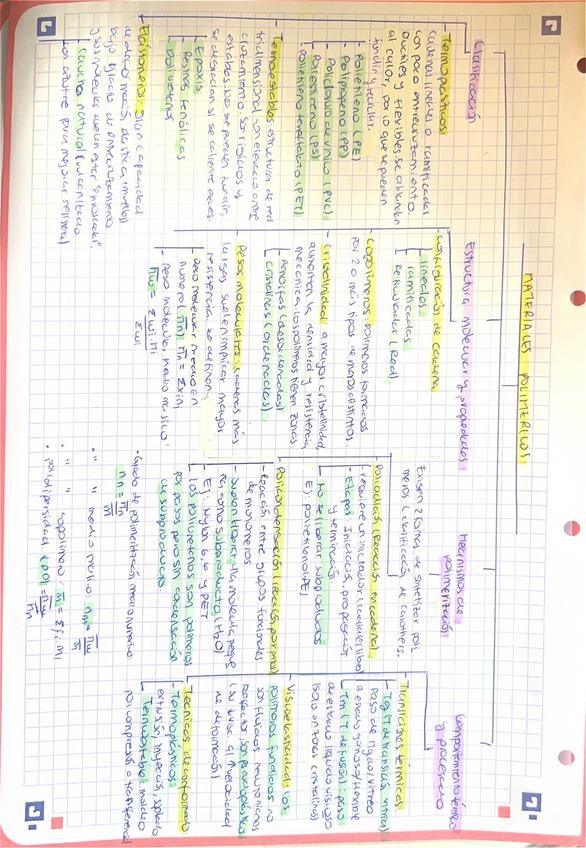 MATERIALES POLIMÉRICOS
Clasificación
Termoplásticos:
cadenas lineales o ramificadas
con poco entrecruzamiento.
Dúctiles y flexibles, se ablandan
al calor, por lo que se pueden
fundir y reciclar.
Polietileno (PE)
Polipropeno (PP)
Policloruro de vinilo (PVC)
Poliestireno (PS)
Polietileno tereftalato (PET)
Termoestables: estructura de red
tridimensional con elevado entre
cruzamiento. Son rígidos y
estables. No se pueden fundir,
se degradan si se calienta exces.
Epoxis
Resinas fenólicas
Poliuretanos
Elastómeros: gran capacidad
de deformación elástica (muelles)
bajo grado de entrecruzamiento
y sus moléculas suelen estar "enroscadas"
Caucho natural (vulcanizado
con azufre para mejorar resilencia)
Estructura molecular y propiedades
Configuración de cadena
lineales
ramificadas
Reticulada (Red)
Copolímeros: polímeros formados
por 2 o más tipos de meros distintos.
Cristalinidad: a mayor cristalinidad,
aumentan la densidad y resistencia
mecánica. Los polímeros tienen zonas
Amorfas (desordenadas)
cristalinas (ordenadas)
Pesos moleculares: cadenas más
largas suelen implicar mayor
resistencia. Se definen:
Peso molecular medio en
número (Mn): Mn = Σxi Mi
Peso molecular medio másico:
Mw = Σwi.Mi
Σwi
Mecanismos de
polimerización
Existen 2 formas de sintetizar polí
meros (clasificación de Carothers.
Poliadición (Reacción en cadena)
requiere un iniciador (radical libre)
Etapas: Iniciación, propagación
y terminación.
No se liberan subproductos
Ej: polietileno (PE)
Policondensación (reacción por pasos)
Reacción entre grupos funcionales
de monómeros
Suelen liberar una molécula peque
ña como subproducto (H2O)
Ej: Nylon 6,6 y PET
Los poliuretanos son polímeros
por pasos pero sin condensación
de subproducto.
Grado de polimerización medio numérico:
nn = Mn
m
" " medio másico: nw = Mw
m
" " copolímero: m = Σfi.mi
polidispersidad (PDI) = Mw
Mn
Comportamiento térmico
y procesado
Transiciones térmicas
Tg (T de transición vítrea)
paso de rígido/vítreo
a estado gomoso/flexible
Tm (T de fusión): paso
de estado líquido viscoso
(solo en zonas cristalinas)
Viscoelasticidad: los
polímeros fundidos no
son fluidos newtonianos
(su visc. a la velocidad
de deformación)
Técnicas de conformado
Termoplásticos:
extrusión, inyección, soplado
Termoestable: moldeo
por compresión o transferencia